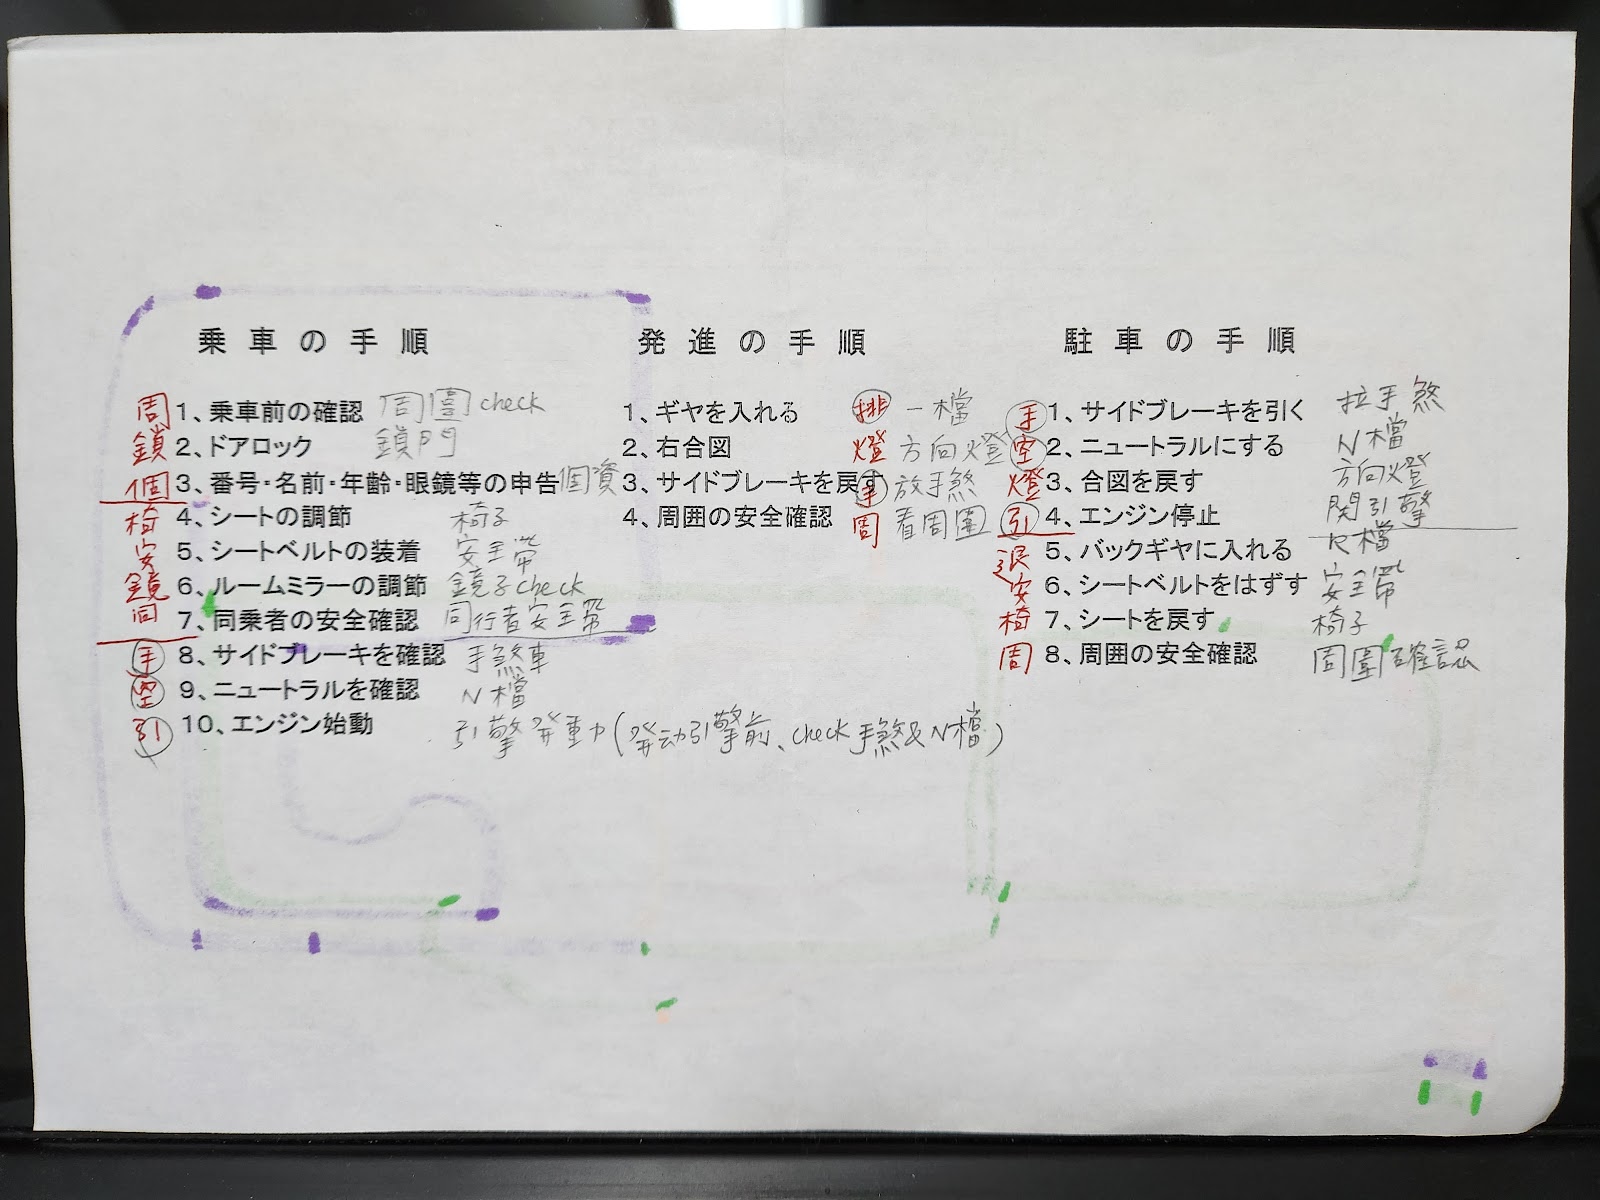 乗車の手順
周 1、乗車前の確認 周圍check
鎖 2、ドアロック 鎖門
個 3、番号・名前・年齢・眼鏡等の申告 個資
椅 4、シートの調節 椅子
安 5、シートベルトの装着 安全帶
鏡 6、ルームミラーの調節 鏡子check
同 7、同乗者の安全確認 同行者安全帶
手 8、サイドブレーキを確認 手煞車
空 9、ニュートラルを確認 N檔
引 10、エンジン始動 引擎發動(發动引擎前、check手煞&N檔)
発進の手順
1、ギヤを入れる 排 一檔
2、右合図 燈 方向燈
3、サイドブレーキを戻す 手 放手煞
4、周囲の安全確認 周 看周圍
駐車の手順
手 1、サイドブレーキを引く 拉手煞
空 2、ニュートラルにする N檔
燈 3、合図を戻す 方向燈
引 4、エンジン停止 関引擎
退 5、バックギヤに入れる R檔
安 6、シートベルトをはずす 安全帶
椅 7、シートを戻す 椅子
周 8、周囲の安全確認 周圍確認